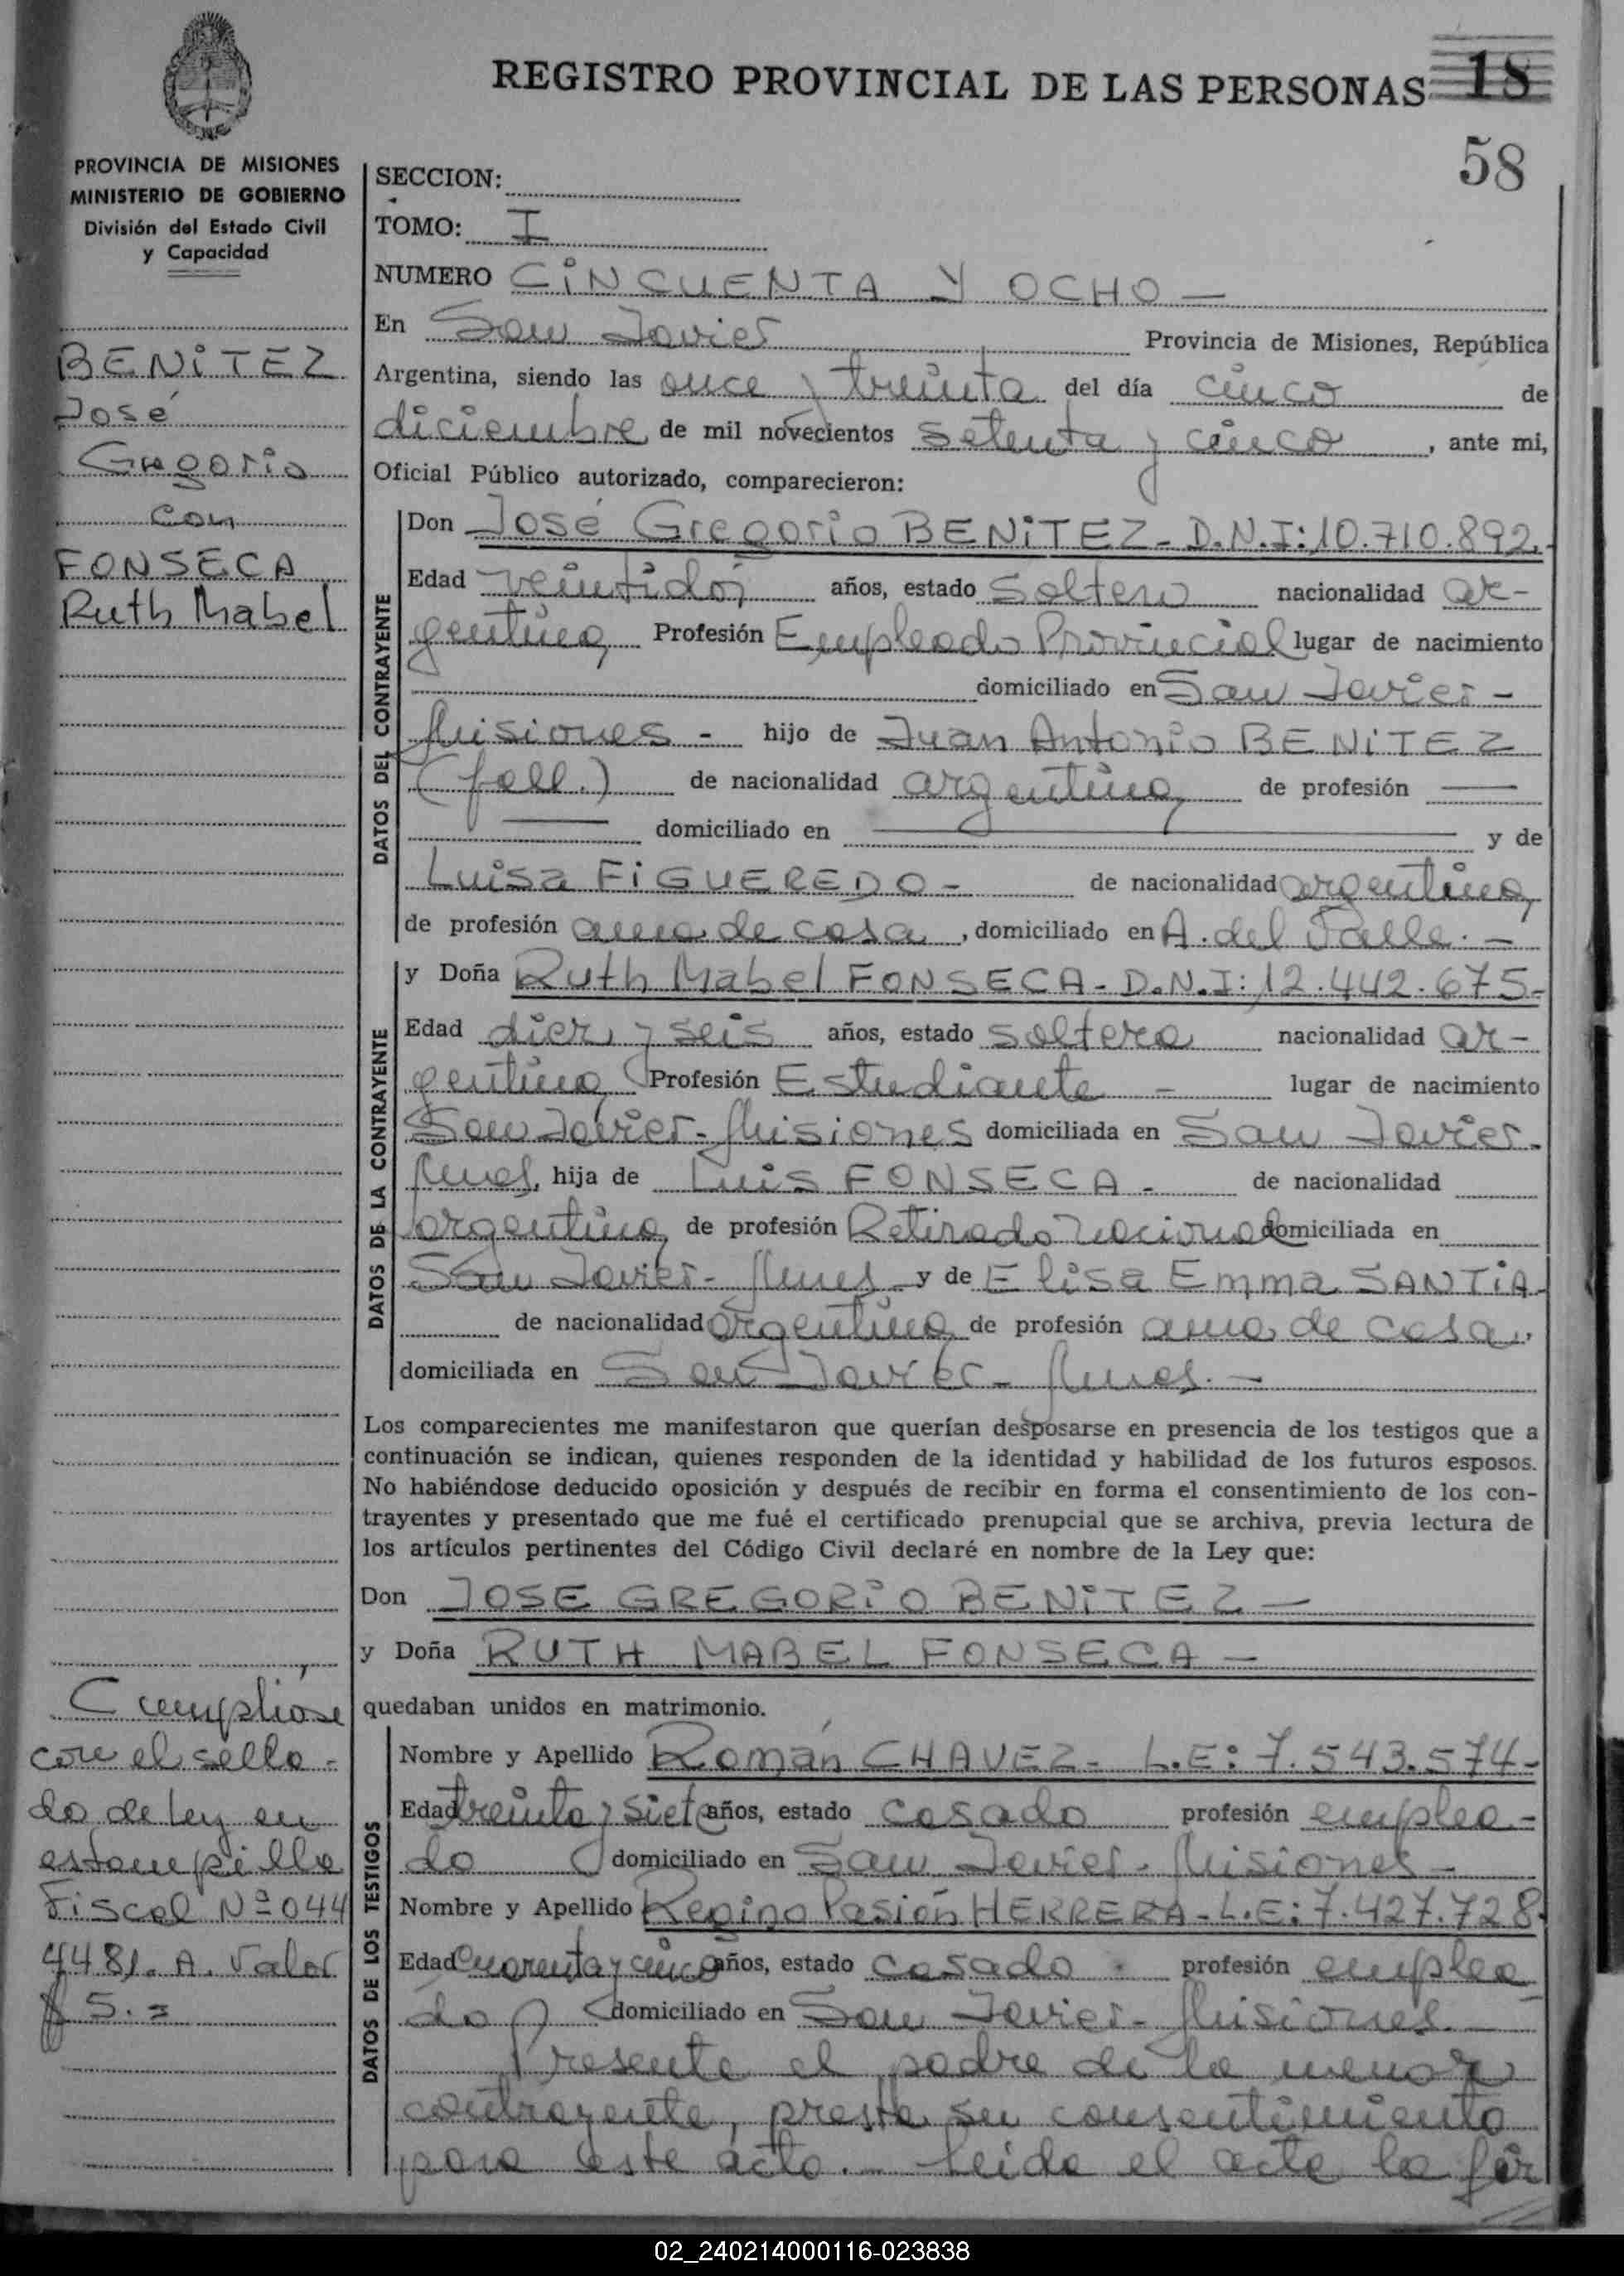 REGISTRO PROVINCIAL DE LAS PERSONAS 18
58
PROVINCIA DE MISIONES
MINISTERIO DE GOBIERNO
División del Estado Civil
y Capacidad
BENiTEZ
José
Gregorio
con
FONSECA
Ruth Mabel
Cumplióse
con el sella-
do de Ley en
estampilla
Fiscal Nº 044
4481. A. Valor
$ 5.=
SECCION:
TOMO: I
NUMERO CiNCUENTA Y OCHO —
En San Javier Provincia de Misiones, República
Argentina, siendo las once y treinta del día cinco de
diciembre de mil novecientos setenta y cinco, ante mi,
Oficial Público autorizado, comparecieron:
DATOS DEL CONTRAYENTE
Don José Gregorio BENiTEZ - D.N.I: 10.710.892.-
Edad veintidós años, estado soltero nacionalidad ar-
gentina, Profesión Empleado Provincial lugar de nacimiento
domiciliado en San Javier -
Misiones - hijo de Juan Antonio BENiTEZ
(fall.) de nacionalidad argentina, de profesión —
— domiciliado en — y de
Luisa FiGUEREDO - de nacionalidad argentina,
de profesión ama de casa, domiciliado en A. del Valle. —
DATOS DE LA CONTRAYENTE
y Doña Ruth Mabel FONSECA - D.N.I: 12.442.675-
Edad diez y seis años, estado soltera nacionalidad ar-
gentina, Profesión Estudiante - lugar de nacimiento
San Javier - Misiones domiciliada en San Javier -
Mnes, hija de Luis FONSECA - de nacionalidad
argentina, de profesión Retirado nacional domiciliada en
San Javier - Mnes y de Elisa Emma SANTiA-
de nacionalidad argentina de profesión ama de casa,
domiciliada en San Javier - Mnes. —
Los comparecientes me manifestaron que querían desposarse en presencia de los testigos que a
continuación se indican, quienes responden de la identidad y habilidad de los futuros esposos.
No habiéndose deducido oposición y después de recibir en forma el consentimiento de los con-
trayentes y presentado que me fué el certificado prenupcial que se archiva, previa lectura de
los artículos pertinentes del Código Civil declaré en nombre de la Ley que:
Don JOSE GREGORiO BENiTEZ —
y Doña RUTH MABEL FONSECA —
quedaban unidos en matrimonio.
DATOS DE LOS TESTIGOS
Nombre y Apellido Román CHAVEZ - L.E: 7.543.574-
Edad treinta y siete años, estado casado profesión emplea-
do domiciliado en San Javier - Misiones -
Nombre y Apellido Regino Pasión HERRERA - L.E: 7.427.728.
Edad cuarenta y cinco años, estado casado - profesión emplea
do domiciliado en San Javier - Misiones. —
Presente el padre de la menor
contrayente, presta su consentimiento
para este acto. — Leida el acta la fir
02_240214000116-023838